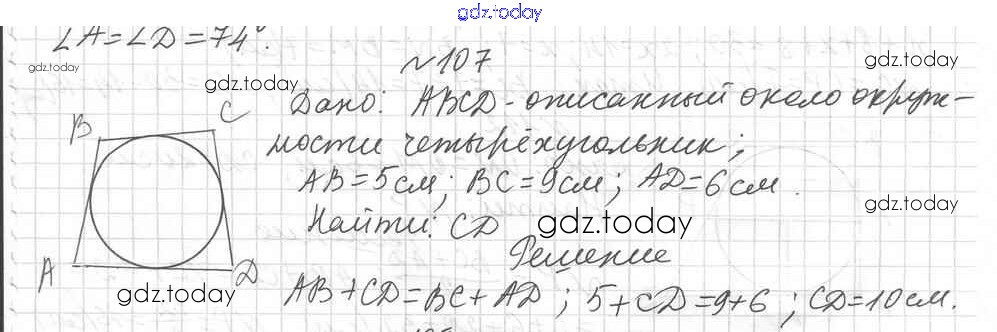 gdz.today
∠A=∠D=74°.
gdz.today
№107
gdz.today
gdz.today
Дано: ABCD - описанный около окруж-
ности четырёхугольник;
B
C
AB=5см; BC=9см; AD=6см.
gdz.today
Найти: CD
gdz.today
Решение
A
D
gdz.today
AB+CD=BC+AD; 5+CD=9+6; CD=10см.
gdz.today